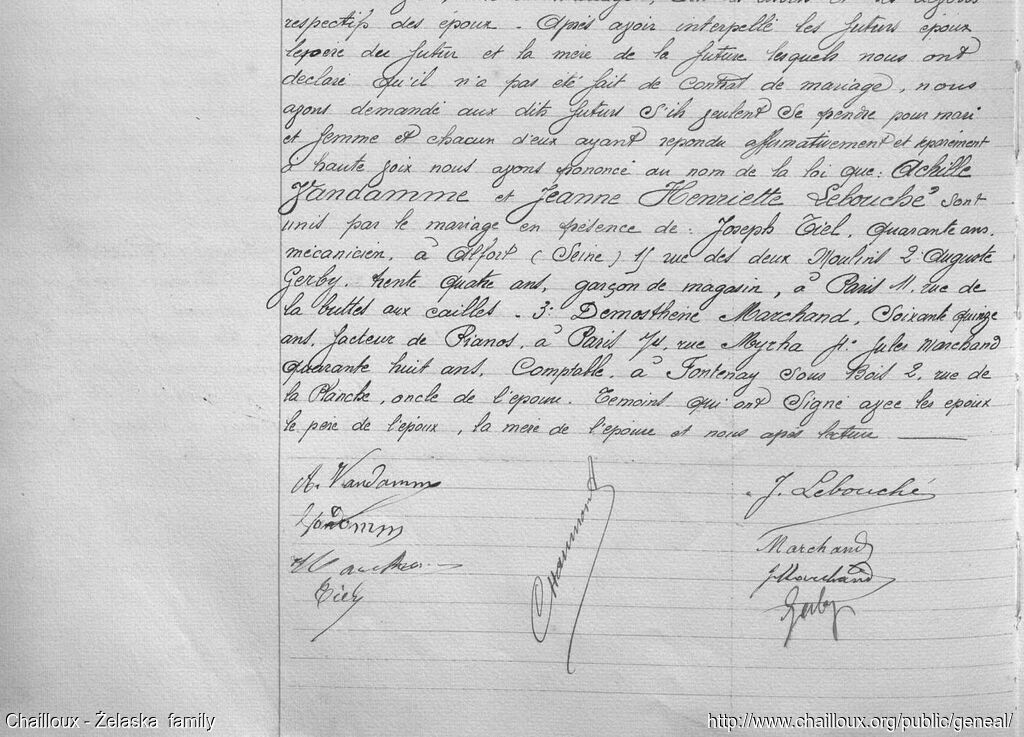 respectif des époux. Après avoir interpellé les futurs époux
le père du futur et la mère de la future lesquels nous ont
déclaré qu'il n'a pas été fait de contrat de mariage, nous
avons demandé aux dits futurs s'ils veulent se prendre pour mari
et femme et chacun d'eux ayant répondu affirmativement et séparément
à haute voix nous avons prononcé au nom de la loi que: Achille
Vandamme et Jeanne Henriette Lebouché sont
unis par le mariage en présence de: Joseph Tiel, quarante ans,
mécanicien, à Alfort (Seine) 15 rue des deux Moulins 2° Auguste
Gerby, trente quatre ans, garçon de magasin, à Paris 11, rue de
la buttes aux cailles. 3° Demosthène Marchand, Soixante quinze
ans, facteur de Pianos, à Paris 74, rue Myrha 4° Jules Marchand
quarante huit ans, Comptable, à Fontenay sous Bois 2, rue de
la Planche, oncle de l'épouse. Témoins qui ont signé avec les époux
le père de l'époux, la mère de l'épouse et nous après lecture
A. Vandamm
J. Lebouché
Vandamm
Chaumont
Marchand
JMarchand
Tiel
Gerby
Chailloux - Żelaska family
http://www.chailloux.org/public/geneal/